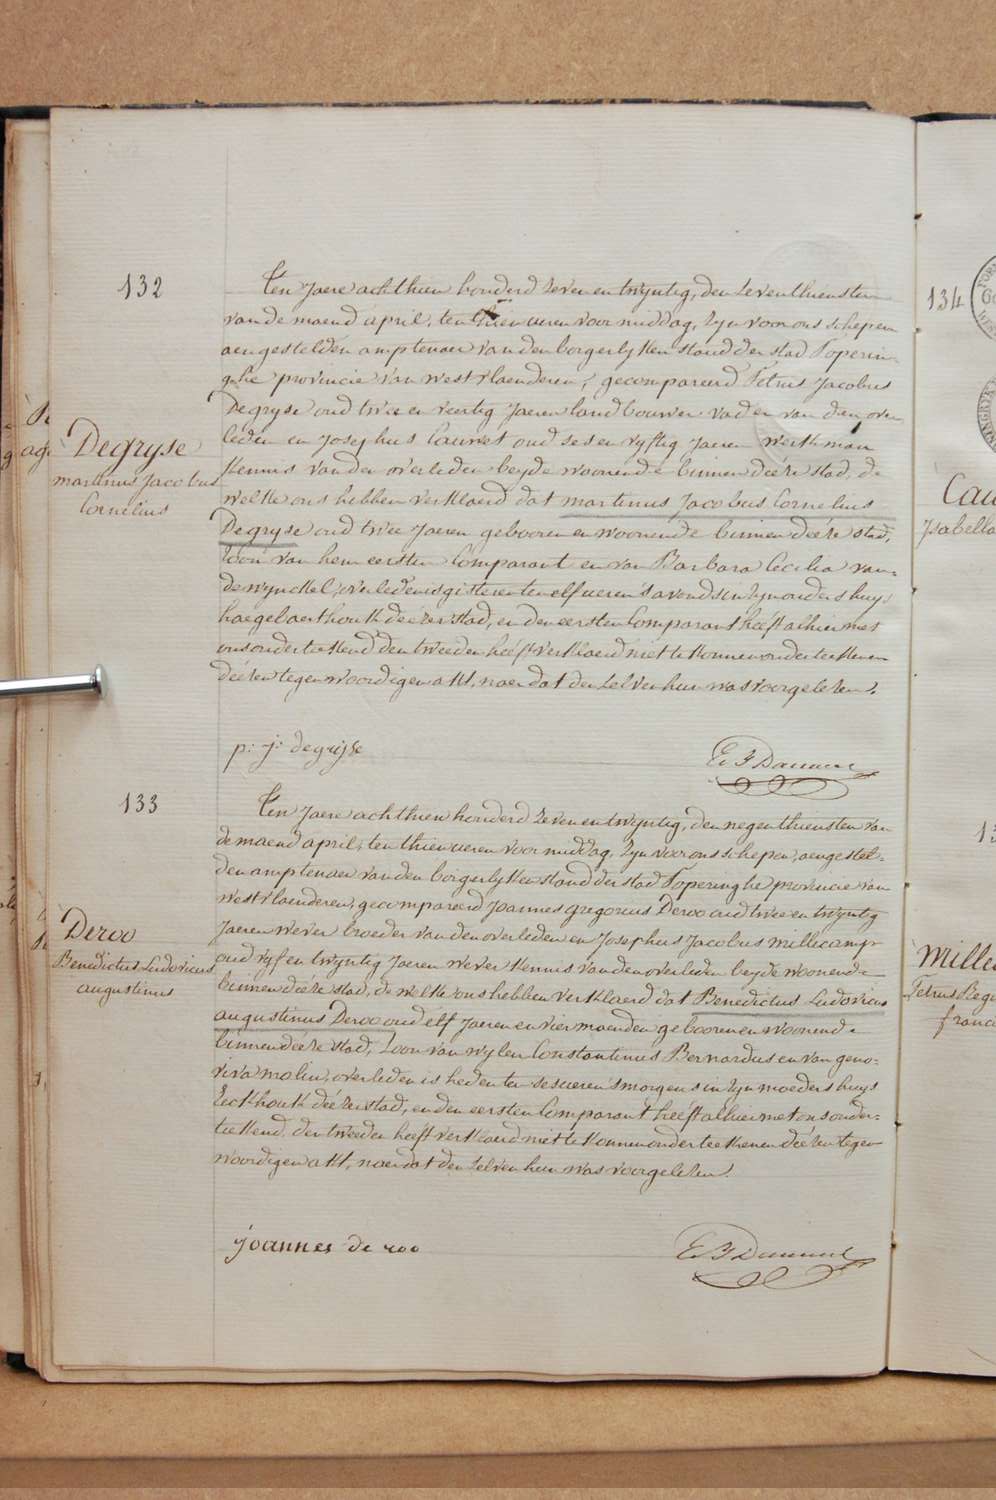 132
Degryse
martinus Jacobus
Cornelius
Ten Jaere achthien honderd zeven en twyntig, den zeventhiensten
van de maend april, ten thien ueren voor middag, zyn voor ons schepen
aengestelden amptenaer van den borgerlyken stand der stad Poperin-
ghe provincie van westvlaenderen, gecompareerd Petrus Jacobus
Degryse oud twee en veertig Jaeren landbouwer vader van den over
leden en Josephus Cauwet oud ses en vyftig Jaeren werkman
kennis van den overleden beyde woonende binnen deéze stad, de
welke ons hebben verklaerd dat martinus Jacobus Cornelius
Degryse oud twee Jaeren gebooren en woonende binnen deéze stad,
zoon van hem eersten Comparant en van Barbara Cecilia van-
dewynckel, overleden is gisteren ten elf ueren s'avonds in zyn ouders huys
haegelaerthouk deézer stad, en den eersten Comparant heéft alhier met
ons onderteekend den tweeden heéft verklaerd niet te konnen onderteekenen
deézen tegenwoordigen akt, naer dat den zelven hun was voorgelezen.
p: j: degrijse
133
Deroo
Benedictus Ludovicus
augustinus
Ten Jaere achthien honderd zeven en twyntig, den negenthiensten van
de maend april, ten thien ueren voor middag, zyn voor ons schepen, aengestel-
den amptenaer van den borgerlyken stand der stad Poperinghe provincie van
westvlaenderen, gecompareerd Joannes gregorius Deroo oud twee en twyntig
Jaeren wever broeder van den overleden en Josephus Jacobus millecamp
oud vyf en twyntig Jaeren wever kennis van den overleden beyde woonende
binnen deéze stad, de welke ons hebben verklaerd dat Benedictus Ludovicus
augustinus Deroo oud elf Jaeren en vier maenden gebooren en woonende
binnen deéze stad, zoon van wylen Constantinus Bernardus en van geno-
viva molin, overleden is heden ten ses ueren s'morgens in zyn moeders huys
Eeckhouk deézer stad, en den eersten Comparant heéft alhier met ons onder-
teekend. den tweeden heeft verklaerd niet te konnen onderteekenen deézen tegen
woordigen akt, naer dat den zelven hun was voorgelezen.
joannes de roo
134
Cau
Isabella
13
Mille
Petrus
franc